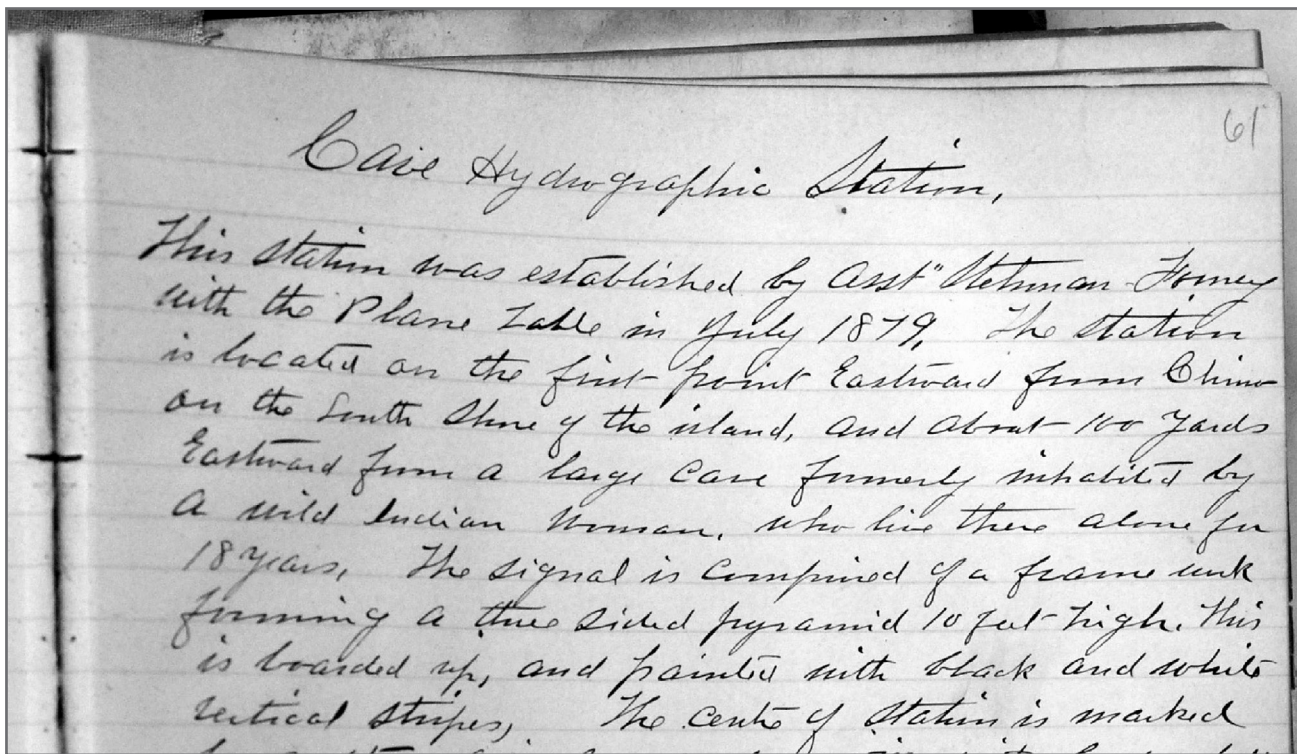 61
Cave Hydrographic Station,
This station was established by Asst" Stehman Forney
with the Plane Table in July 1879, The station
is located on the first point Eastward from Chimo
on the South Shore of the island, and about 100 Yards
Eastward from a large Cave formerly inhabited by
a wild Indian Woman, who live there alone for
18 Years, The signal is compined of a frame work
forming a three sided pyramid 10 feet high. This
is boarded up, and painted with black and white
vertical stripes, The centre of station is marked